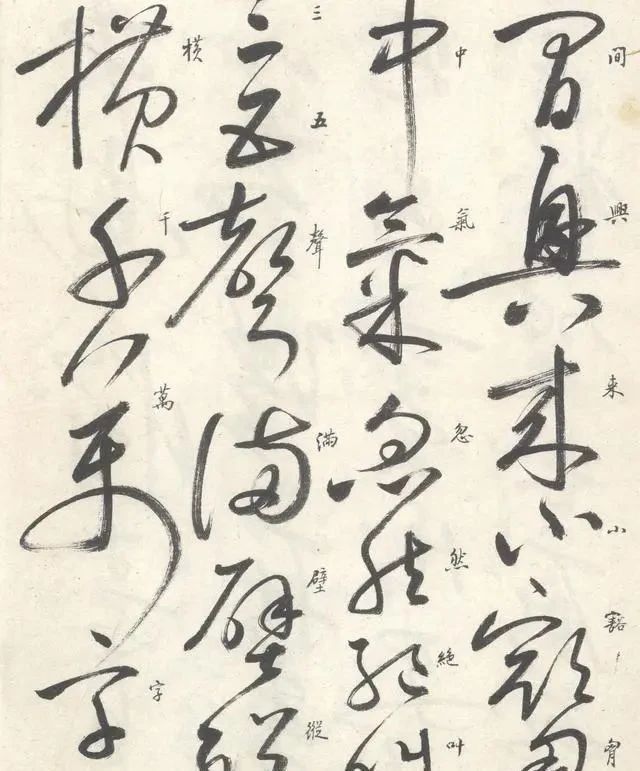 间興来小豁胷
中氣忽然絶叫
三五聲滿壁縱
横千萬字